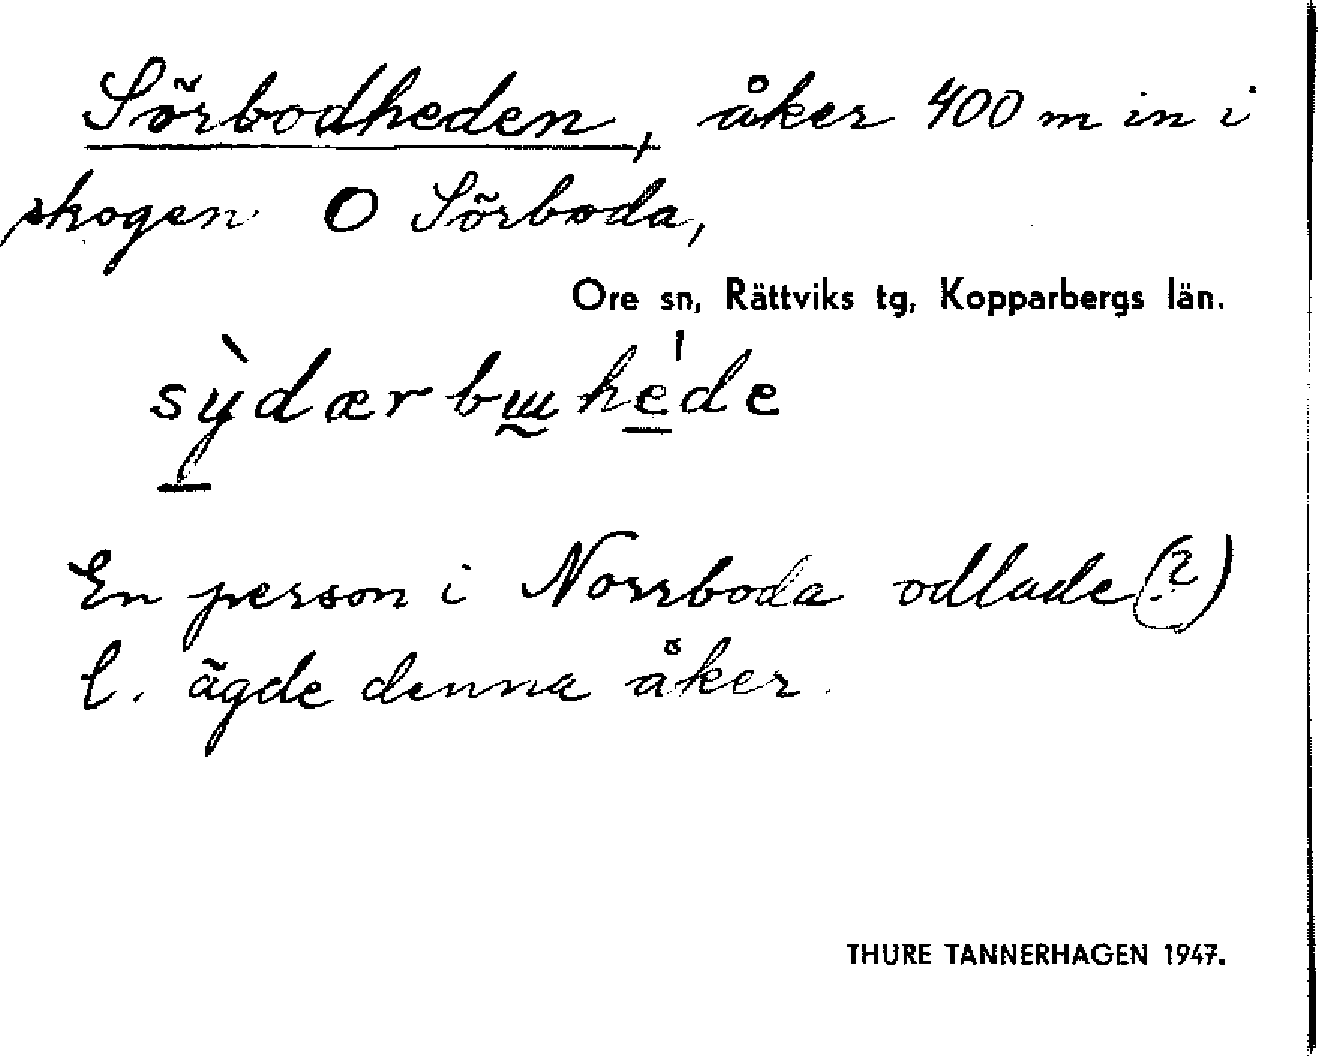 Sörbodheden, åker 400 m in i
skogen O Sörboda,
Ore sn, Rättviks tg, Kopparbergs län.
sỳ̠dærbɯ̰he̠̍de
En person i Norrboda odlade (?)
l. ägde denna åker.
THURE TANNERHAGEN 1947.